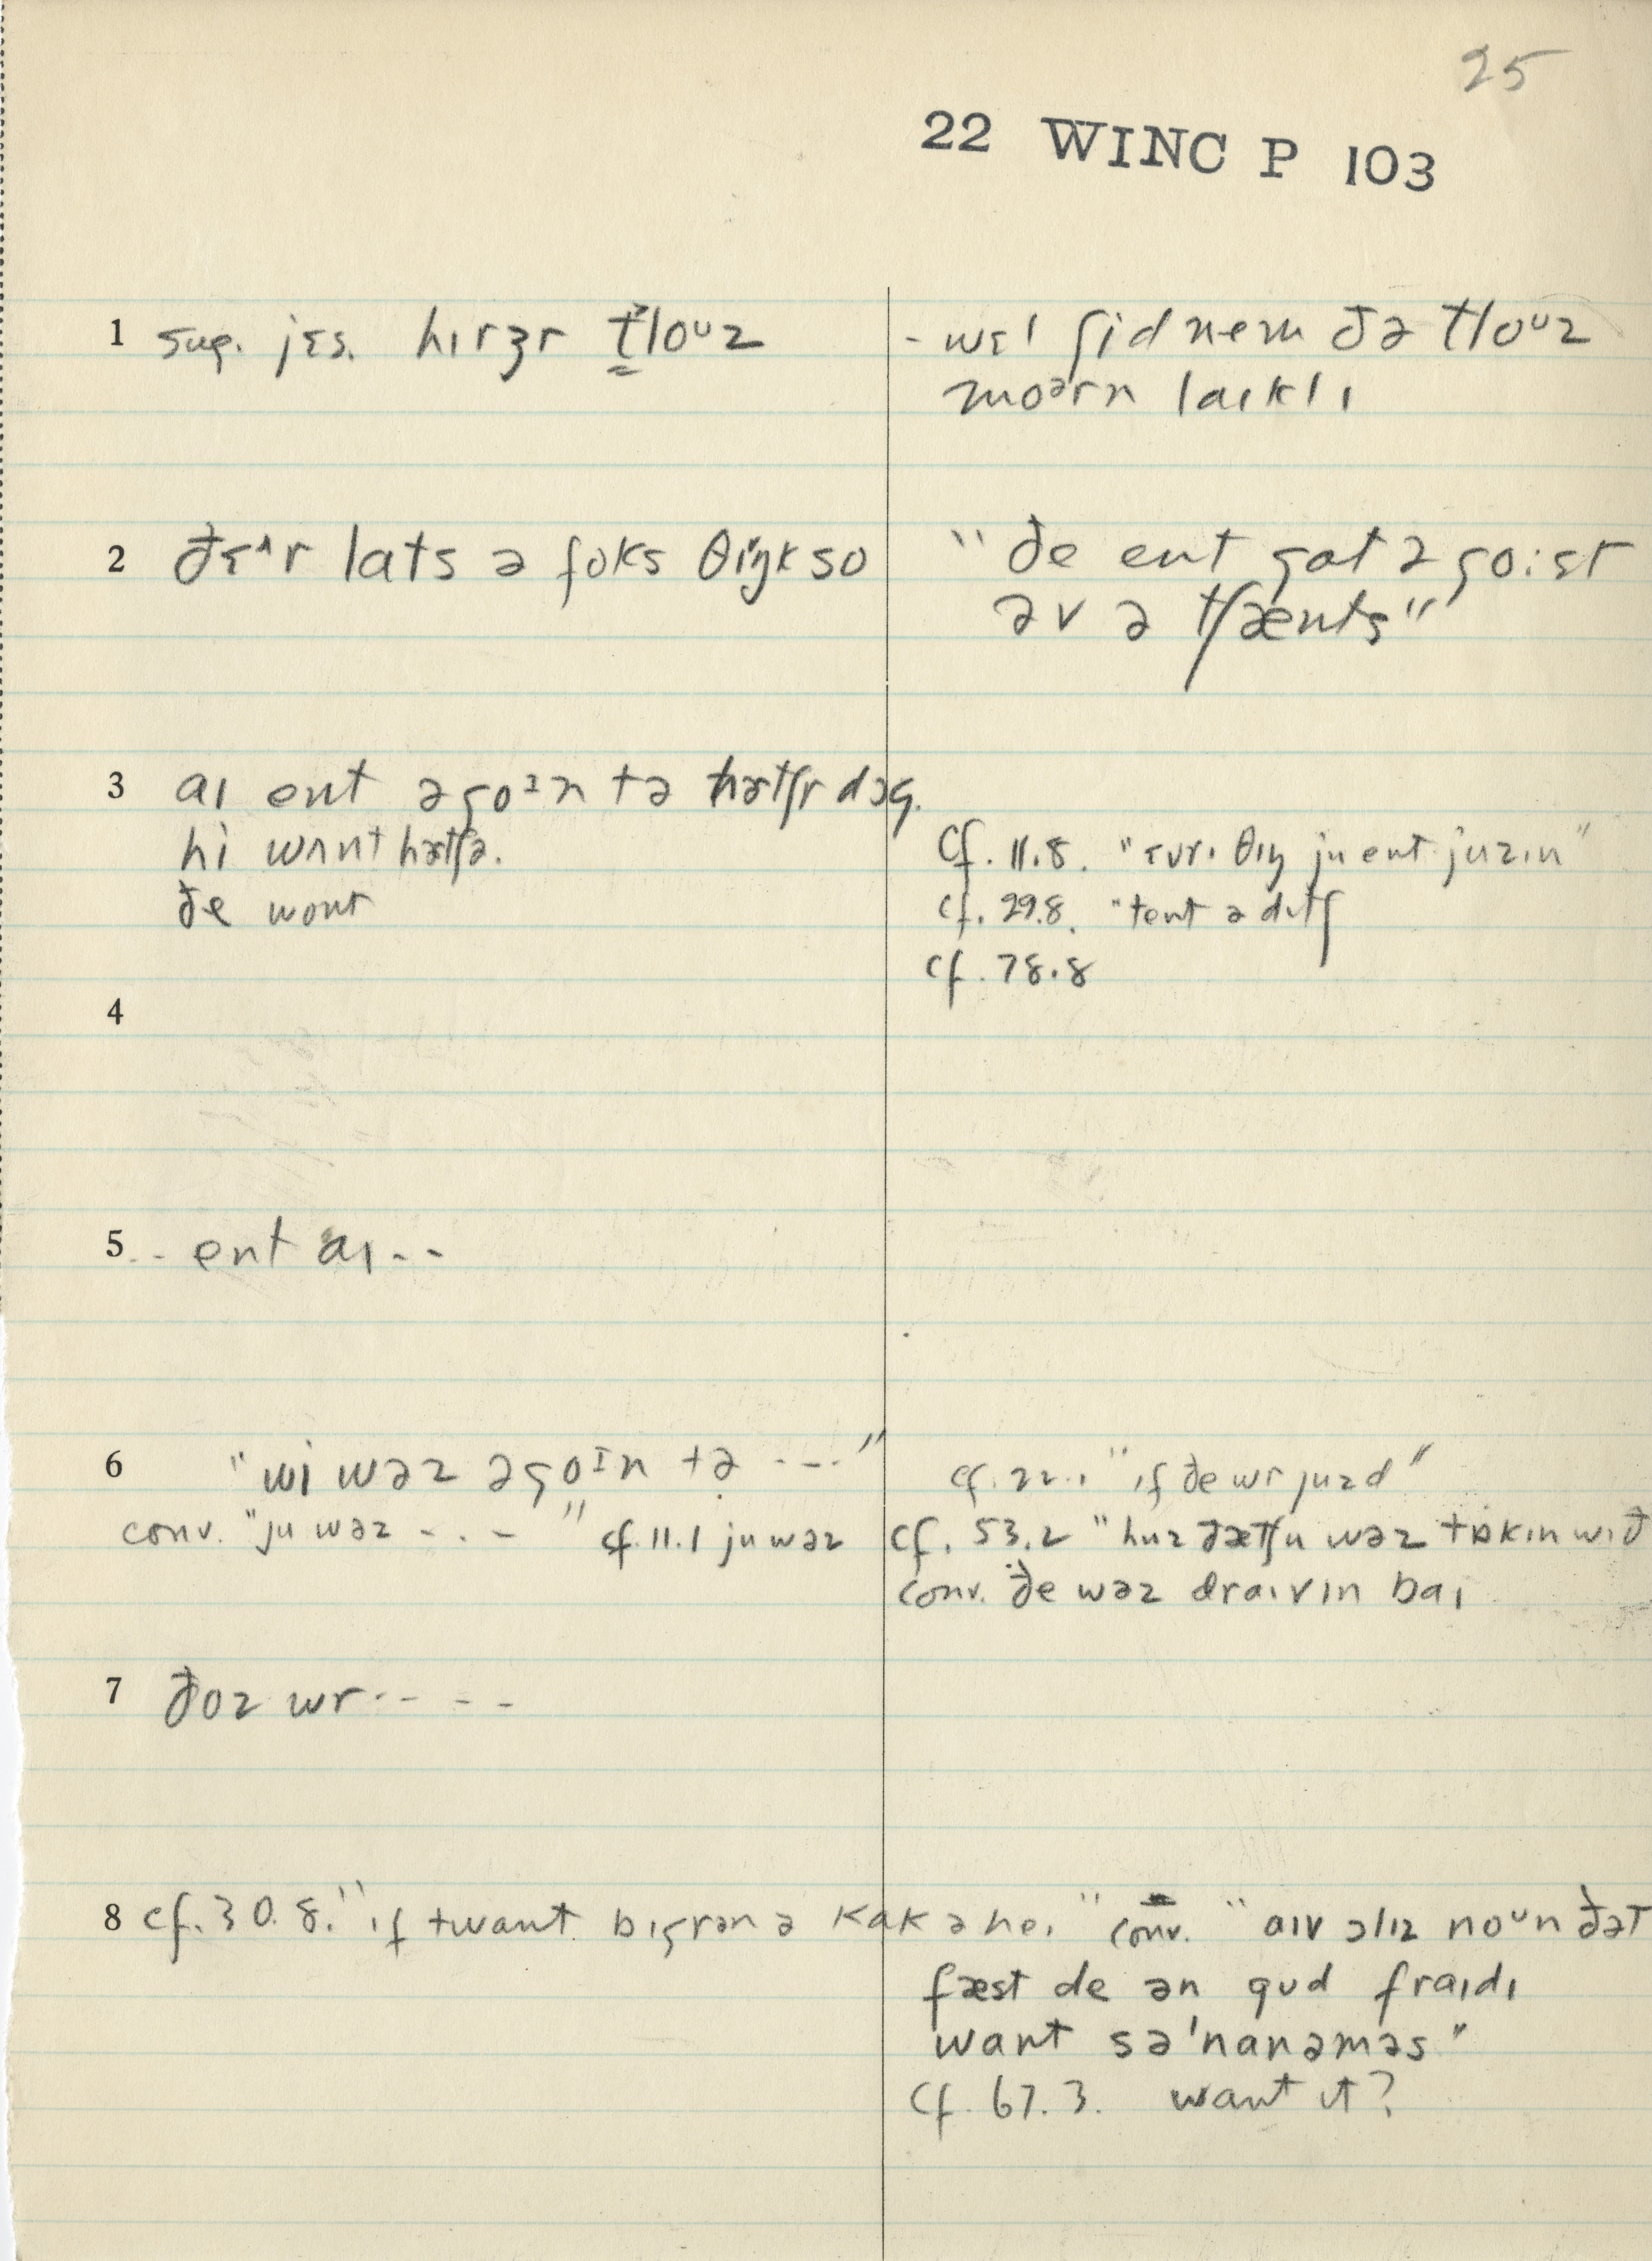 25
22 WINC P 103
1 sug. jɛs. hɪrʒr t̬loᵘz
- wɛl ʃidnem ðə tloᵘz
moərn laɪklɪ
2 ðɛ^r lats ə foks θiŋk so
"ðe ent gat ə goɪst
əv ə tʃænts"
3 aɪ ent əgoɪn tə hɜtʃr dɔg.
hi wʌnt hɜtʃə.
ðe wont
cf. 11.8. "ɛvrɪ θɪŋ ju ent juzɪn"
cf. 29.8. "tent ə dɪtʃ
cf. 78.8
4
5 -- ent aɪ --
6 "wi wəz əgoɪn tə ---"
cf. 22.1 "ɪf ðe wr juzd"
conv. "ju wəz - . . -" cf. 11.1 ju wəz
cf. 53.2 "huz ðætʃu wəz tɒkɪn wɪð
conv. ðe wəz draɪvɪn baɪ
7 ðoz wr -- - -
8 cf. 30.8. "ɪf twant bɪgrən ə kak ə he." conv. "aɪv ɔlɪz noᵘn ðət
fæst de ən gud fraɪdɪ
want sə'nanəməs"
cf. 67.3. want ɪt?